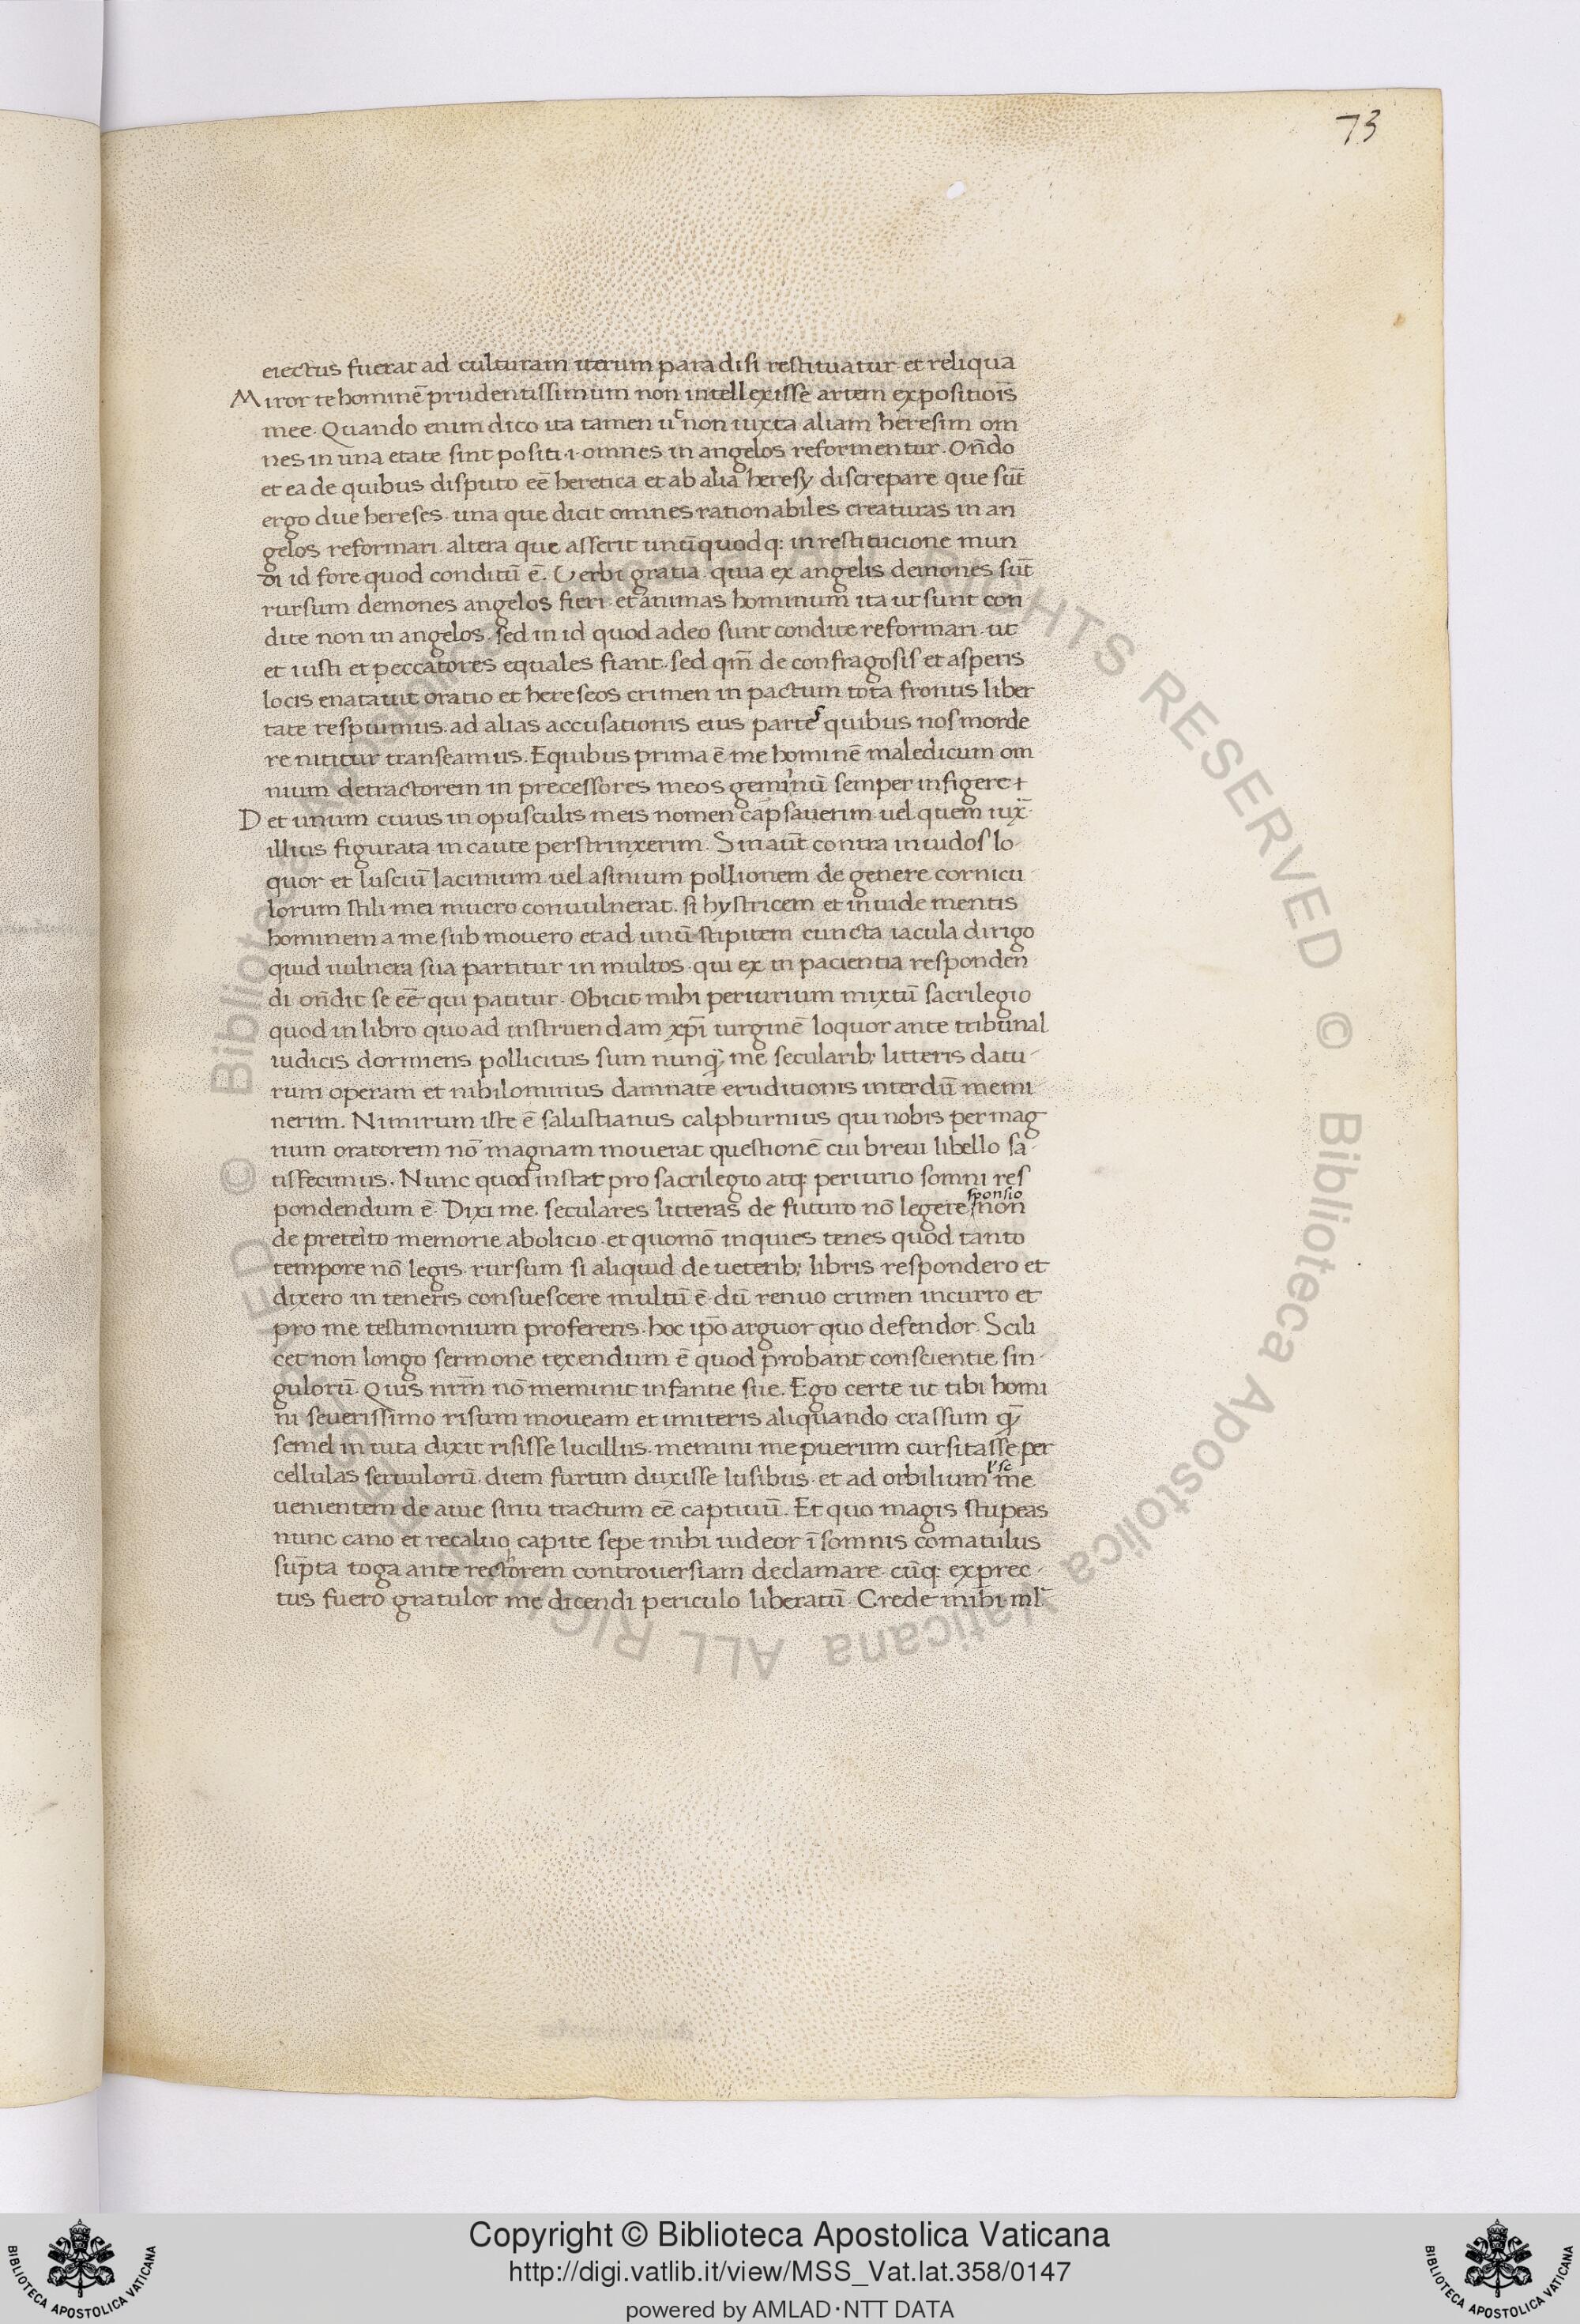 73
eiectus fuerat ad culturam iterum paradisi restituatur. et reliqua
Miror te hominē prudentissimum non intellexisse artem expositiōis
mee. Quando enim dico ita tamen ut non iuxta aliam heresim om
nes in una etate sint positi .i. omnes in angelos reformentur. Oñdo
et ea de quibus disputo eē heretica et ab alia heresy discrepare que sūt
ergo due hereses. una que dicit omnes rationabiles creaturas in an
gelos reformari. altera que asserit unūquodq: in restitucione mun
di id fore quod conditū ē. Verbi gratia. quia ex angelis demones sūt
rursum demones angelos fieri. et animas hominum ita ut sunt con
dite non in angelos. sed in id quod a deo sunt condite reformari. ut
et iusti et peccatores equales fiant. sed qm̄ de confragosis et asperis
locis enatauit oratio et hereseos crimen in pactum tota frontis liber
tate respuimus. ad alias accusationis eius partes quibus nos morde
re nititur transeamus. Equibus prima ē me hominē maledicum om
nium detractorem in precessores meos geminū semper infigere +
Det unum cuius in opusculis meis nomen cāpsauerim uel quem iux̄
illius figurata incaute perstrinxerim. Sin aūt contra inuidos lo-
quor et lusciū lacinium uel asinium pollionem de genere cornicu
lorum stili mei mucro conuulnerat. si hystricem et inuide mentis
hominem a me submouero et ad unū stipitem cuncta iacula dirigo
quid uulnera sua partitur in multos. qui ex in pacientia responden
di oñdit se eē qui patitur. Obicit mihi periurium mixtū sacrilegio
quod in libro quo ad instruendam xp̄i uirginē loquor ante tribunal
iudicis dormiens pollicitus sum nunq̄ me secularib; litteris datu-
rum operam et nihilominus damnate eruditionis interdū memi
nerim. Nimirum iste ē salustianus calphurnius qui nobis per mag
num oratorem nō magnam mouerat questionē cui breui libello sa-
tisfecimus. Nunc quod instat pro sacrilegio atq: periurio somni res
pondendum ē. Dixi me. seculares litteras de futuro nō legere
sponsio
non
de preterito memorie abolicio. et quomō inquies tenes quod tanto
tempore nō legis. rursum si aliquid de ueterib; libris respondero et
dixero in teneris consuescere multū ē. dū renuo crimen incurro et
pro me testimonium proferens. hoc ip̄o arguor quo defendor. Scili
cet non longo sermone texendum ē quod probant conscientie sin-
gulorū. Quis nr̄m nō meminit infantie sue. Ego certe ut tibi homi
ni seuerissimo risum moueam et imiteris aliquando crassum q̄
semel in uita dixit risisse lucillius. memini me puerum cursitasse per
cellulas seruulorū. diem furtim duxisse lusibus. et ad orbilium me
uenientem de auie sinu tractum eē captiuū. Et quo magis stupeas
nunc cano et recaluo capite sepe mihi uideor ī somnis comatulus
sūpta toga ante rectorem controuersiam declamare. cūq: exprec-
tus fuero gratulor me dicendi periculo liberatū. Crede mihi ml̄
Copyright © Biblioteca Apostolica Vaticana
http://digi.vatlib.it/view/MSS_Vat.lat.358/0147
powered by AMLAD·NTT DATA